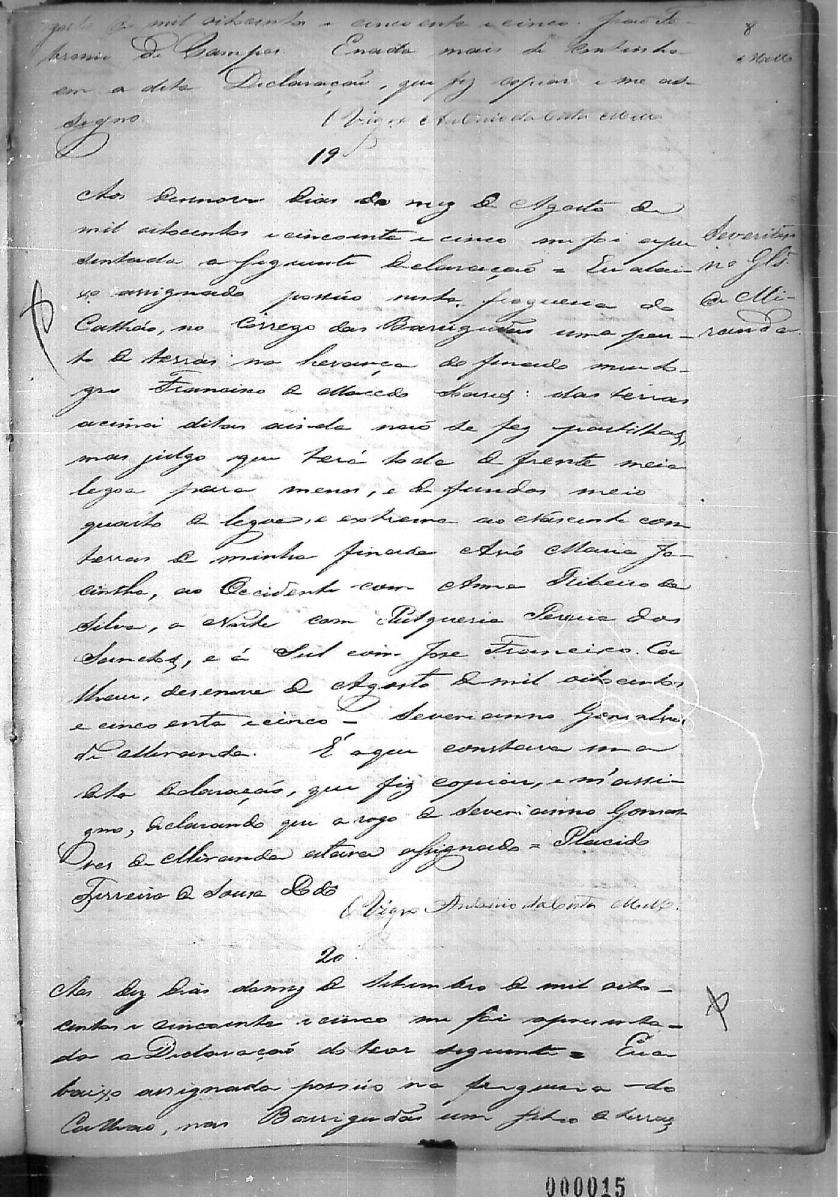 gosto de mil oitocentos e cincoenta e cinco. João Je-
8
ronimo de Campos. E nada mais se continha
Mello
em a dita Declaração, que fiz copiar e me as-
signo. O Vigro Antonio da Costa Mello
19
Aos desenove dias do mez de Agosto de
mil oitocentos e cincoenta e cinco me foi apre
sentada a seguinte Declaração = Eu abai-
xo assignado possúo nesta freguesia do
Calháo, no Corrego das Barrigudas uma par-
te de terras na herança do finado meu so-
gro Francisco de Macedo Soares: das terras
acima ditas ainda não se fez partilhas,
mas julgo que terá toda de frente meia
legoa para menos, e de fundos meio
quarto de legoa, e extrema ao Nascente com
terras de minha finada Avó Maria Ja-
cintha, ao Occidente com Anna Ribeiro da
Silva, a Norte com Pulqueria Pereira dos
Sanctos, e á Sul com José Francisco. Ca
lhau, desenove de Agosto de mil oitocentos
e cincoenta e cinco = Severianno Gonsalves
de Miranda. É a que constava uma
dita declaração, que fiz copiar, e m'assi-
gno, declarando que a rogo de Severianno Gonsal
ves de Miranda estava assignado = Placido
Ferreira de Souza
O Vigro Antonio da Costa Mello.
Severian
no Gls.
de Mi-
randa.
20
Aos dez dias do mez de Setembro de mil oito-
centos e cincoenta e cinco me foi apresenta-
da a Declaração do teor seguinte = Eu a-
baixo assignada possúo na freguesia do
Calháo, nas Barrigudas um sitio de terras
000015